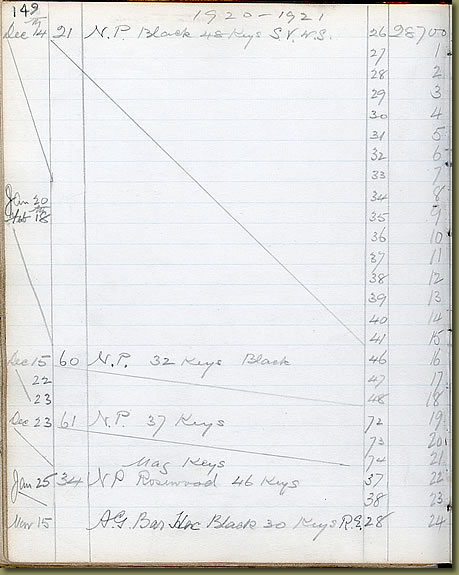 149 1920-1921
Dec 14 21 N.P. Black 48 Keys S.V.N.S. 26 28700
27 1
28 2
29 3
30 4
31 5
32 6
33 7
Jan 20 34 8
Feb 18 35 9
36 10
37 11
38 12
39 13
40 14
41 15
Dec 15 60 N.P. 32 Keys Black 46 16
22 47 17
23 48 18
Dec 23 61 N.P. 37 Keys 72 19
73 20
Mag Keys 74 21
Jan 25 34 NP Rosewood 46 Keys 37 22
38 23
Nov 15 A.G. Bar Hoc Black 30 Keys R.E. 28 24